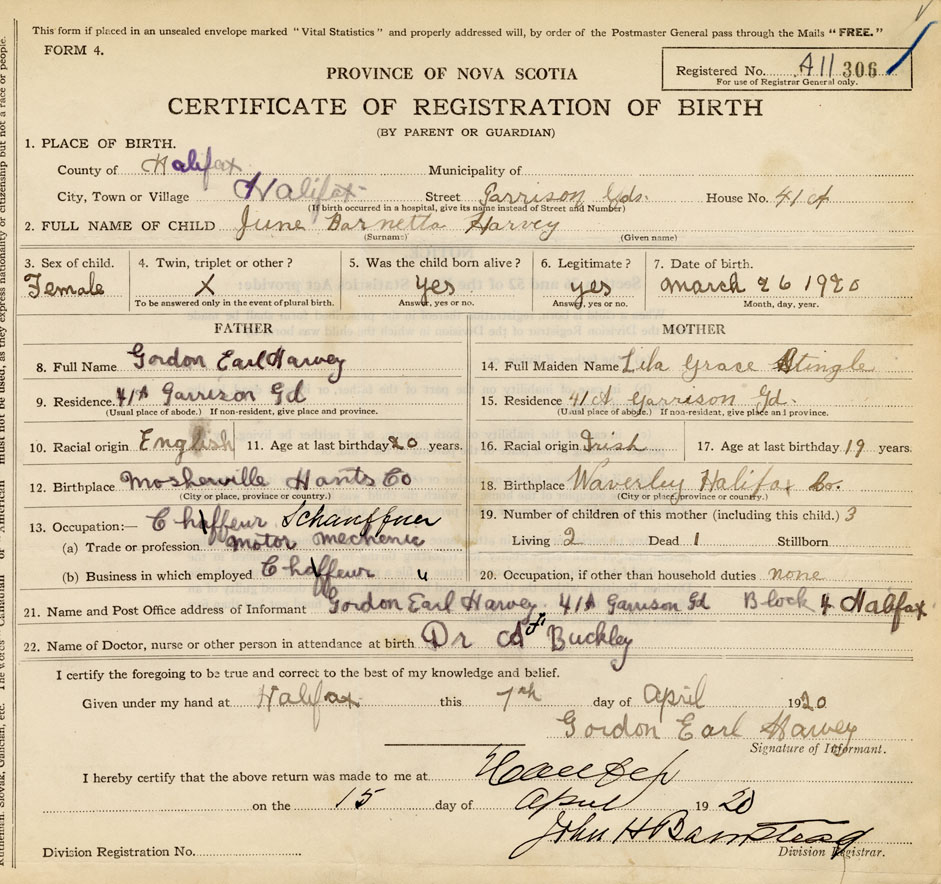 This form if placed in an unsealed envelope marked "Vital Statistics" and properly addressed will, by order of the Postmaster General pass through the Mails "FREE."
FORM 4.
Registered No. A11 306
For use of Registrar General only.
PROVINCE OF NOVA SCOTIA
CERTIFICATE OF REGISTRATION OF BIRTH
(BY PARENT OR GUARDIAN)
1. PLACE OF BIRTH.
County of Halifax Municipality of
City, Town or Village Halifax Street Garrison Gds. House No. 41 A
(If birth occurred in a hospital, give its name instead of Street and Number)
2. FULL NAME OF CHILD June Barnetta Harvey
(Surname) (Given name)
3. Sex of child. 4. Twin, triplet or other? 5. Was the child born alive? 6. Legitimate? 7. Date of birth.
Female X Yes yes March 26 1920
To be answered only in the event of plural birth. Answer, yes or no. Answer, yes or no. Month, day, year.
FATHER MOTHER
8. Full Name Gordon Earl Harvey 14. Full Maiden Name Lila Grace Stingle
9. Residence 41A Garrison Gd 15. Residence 41 A Garrison Gd.
(Usual place of abode.) If non-resident, give place and province. (Usual place of abode.) If non-resident, give place and province.
10. Racial origin English 11. Age at last birthday 20 years. 16. Racial origin Irish 17. Age at last birthday 19 years.
12. Birthplace Mosherville Hants Co 18. Birthplace Waverley Halifax Co.
(City or place, province or country.) (City or place, province or country.)
13. Occupation:— Chaffeur Schauffner 19. Number of children of this mother (including this child.) 3
(a) Trade or profession Motor Mechenic Living 2 Dead 1 Stillborn
(b) Business in which employed Chaffeur " 20. Occupation, if other than household duties none
21. Name and Post Office address of Informant Gordon Earl Harvey. 41A Garrison Gd Block 4 Halifax
22. Name of Doctor, nurse or other person in attendance at birth Dr A F Buckley
I certify the foregoing to be true and correct to the best of my knowledge and belief.
Given under my hand at Halifax this 7th day of April 1920
Gordon Earl Harvey
Signature of Informant.
I hereby certify that the above return was made to me at
on the 15 day of April 1920
John H Barnstead
Division Registrar.
Division Registration No.